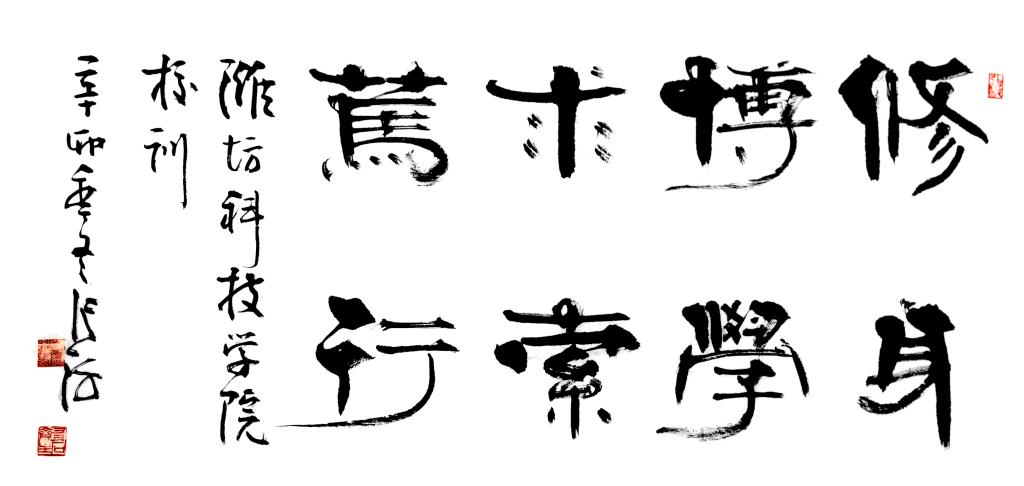 修身
博學
求索
篤行
潍坊科技学院
校训
辛卯季冬张海